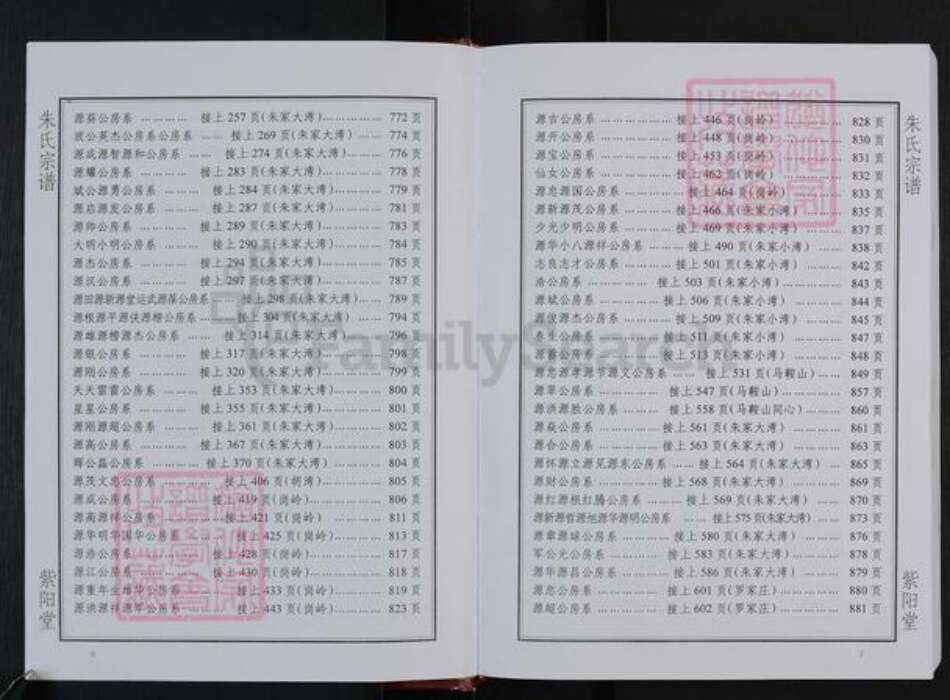 朱氏宗谱
源葵公房系 ………… 接上 257 页(朱家大湾)…………… 772 页
波公英杰公房系公房系 …… 接上 269 页(朱家大湾) …… 774 页
源成源智源和公房系 …… 接上 274 页(朱家大湾)………… 776 页
源耀公房系 ………… 接上 283 页(朱家大湾)…………… 778 页
斌公源勇公房系 ……… 接上 284 页(朱家大湾)………… 779 页
源启源发公房系 ……… 接上 287 页(朱家大湾)………… 781 页
源帅公房系 ………… 接上 289 页(朱家大湾)…………… 783 页
大明小明公房系 ……… 接上 290 页(朱家大湾)………… 784 页
源杰公房系 ………… 接上 294 页(朱家大湾)…………… 785 页
源汉公房系 ………… 接上 297 页(朱家大湾)…………… 787 页
接上 298 页(朱家大湾)…… 789 页
接上 304 页(朱家大湾)……… 794 页
接上 314 页(朱家大湾)……… 796 页
源银公房系 ………… 接上 317 页(朱家大湾)…………… 798 页
源刚公房系 ………… 接上 320 页(朱家大湾)…………… 799 页
天天雷雷公房系 ……… 接上 353 页(朱家大湾)………… 800 页
星星公房系 ………… 接上 355 页(朱家大湾)…………… 801 页
源刚源超公房系 ……… 接上 361 页(朱家大湾)………… 802 页
源高公房系 ………… 接上 367 页(朱家大湾)…………… 803 页
辉公磊公房系 ………… 接上 370 页(朱家大湾) ………… 804 页
源茂文忠公房系 ………… 接上 406 页(胡湾)…………… 805 页
源成公房系 …………… 接上 419 页(岗岭)……………… 806 页
源高源祥公房系 ………… 接上 421 页(岗岭) ………… 811 页
源华明华国华公房系 ……… 接上 425 页(岗岭)………… 813 页
源浩公房系 …………… 接上 428 页(岗岭)……………… 817 页
源江公房系 …………… 接上 430 页(岗岭)……………… 818 页
源重年生雄华公房系 ……… 接上 433 页(岗岭)………… 819 页
源洪源祥源军公房系 ……… 接上 443 页(岗岭)………… 823 页
紫阳堂
6
源吉公房系 …………… 接上 446 页(岗岭)……………… 828 页
源开公房系 …………… 接上 448 页(岗岭)……………… 830 页
源宝公房系 …………… 接上 453 页(岗岭)……………… 831 页
仙女公房系 …………… 接上 462 页(岗岭)……………… 832 页
源忠源国公房系 ………… 接上 464 页(岗岭)………… 833 页
源新源茂公房系 ……… 接上 466 页(朱家小湾)………… 835 页
少光少明公房系 ……… 接上 469 页(朱家小湾)………… 837 页
源华小八源祥公房系 …… 接上 490 页(朱家小湾) …… 838 页
志良志才公房系 ……… 接上 501 页(朱家小湾) ……… 842 页
浩公房系 ………… 接上 503 页(朱家小湾)…………… 843 页
源斌公房系 ………… 接上 506 页(朱家小湾)………… 844 页
源俊源杰公房系 ……… 接上 509 页(朱家小湾)………… 845 页
春生公房系 ………… 接上 511 页(朱家小湾)………… 847 页
源蓄公房系 ………… 接上 513 页(朱家小湾)………… 848 页
源忠源孝源节源文公房系 …… 接上 531 页(马鞍山)…… 849 页
源翠公房系 ………… 接上 547 页(马鞍山)…………… 857 页
源洪源胜公房系 ……… 接上 558 页(马鞍山同心)……… 860 页
源焱公房系 ………… 接上 561 页(朱家大湾)………… 861 页
源合公房系 ………… 接上 563 页(朱家大湾)………… 863 页
源怀源立源见源东公房系 …… 接上 564 页(朱家大湾) … 865 页
源财公房系 ………… 接上 568 页(朱家大湾)………… 869 页
源红源根红腾公房系 …… 接上 569 页(朱家大湾) …… 870 页
源新源哲源旭源华源明公房系 …… 接上 575 页(朱家大湾) …… 873 页
源章源球公房系 ……… 接上 580 页(朱家大湾)………… 876 页
军公光公房系 ………… 接上 583 页(朱家大湾)………… 878 页
源华源昌公房系 ……… 接上 586 页(朱家大湾) ……… 879 页
源忠公房系 ………… 接上 601 页(罗家庄)…………… 880 页
源超公房系 ………… 接上 602 页(罗家庄)…………… 881 页
朱氏宗谱
紫阳堂
7
FamilySearch